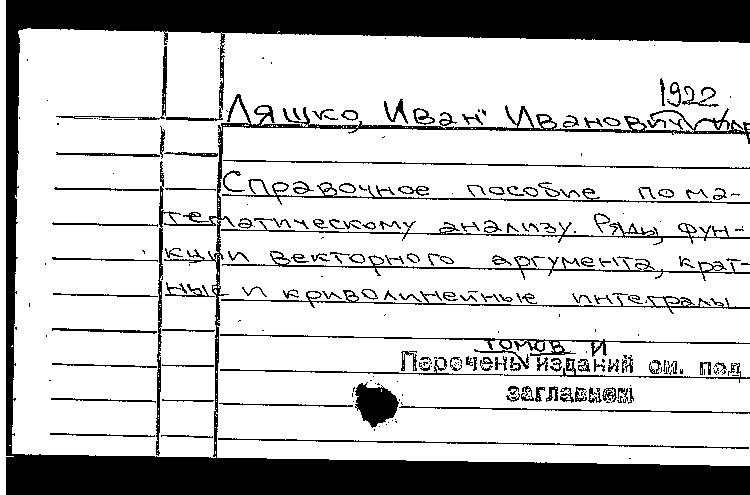 1922
Ляшко, Иван Иванович
Справочное пособие по ма-
тематическому анализу. Ряды, фун-
кции векторного аргумента, крат-
ные и криволинейные интегралы
томов и
Перечень изданий см. под
заглавием